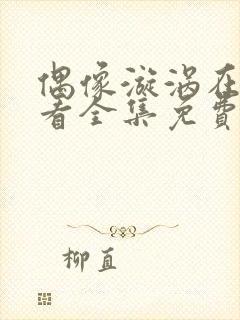 偶像漩涡在
看全集免费
柳直